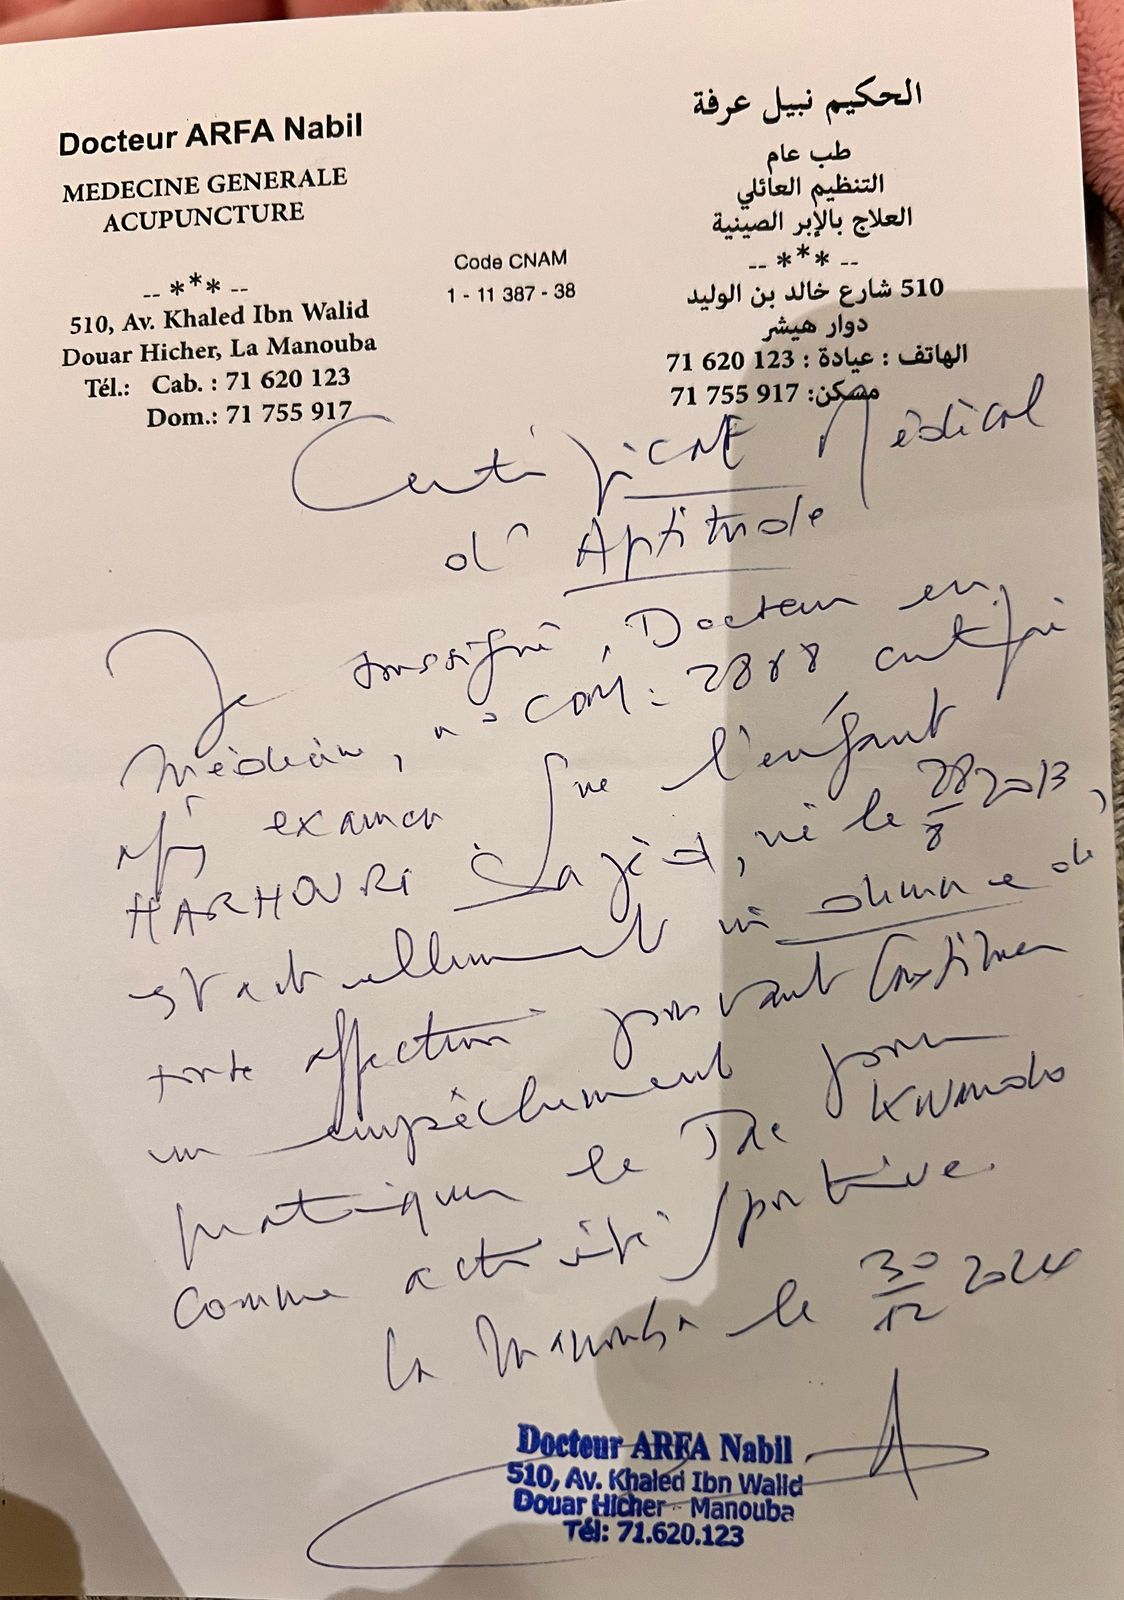 Docteur ARFA Nabil
MEDECINE GENERALE
ACUPUNCTURE
-- *** --
510, Av. Khaled Ibn Walid
Douar Hicher, La Manouba
Tél.: Cab. : 71 620 123
Dom.: 71 755 917
Code CNAM
1 - 11 387 - 38
الحكيم نبيل عرفة
طب عام
التنظيم العائلي
العلاج بالإبر الصينية
-- *** --
510 شارع خالد بن الوليد
دوار هيشر
الهاتف : عيادة : 123 620 71
مسكن: 917 755 71
Certificat Médical
d'Aptitude
Je soussigné, Docteur en
Médecine, n° COM: 2888 certifie
après examen que l'enfant
HARHOURI, né le 28/8 2013,
est actuellement de
toute affection pouvant Constituer
un empêchement pour
pratiquer le Tae KWondo
comme activité sportive.
La Manouba le 30/12 2024
Docteur ARFA Nabil
510, Av. Khaled Ibn Walid
Douar Hicher - Manouba
Tél: 71.620.123